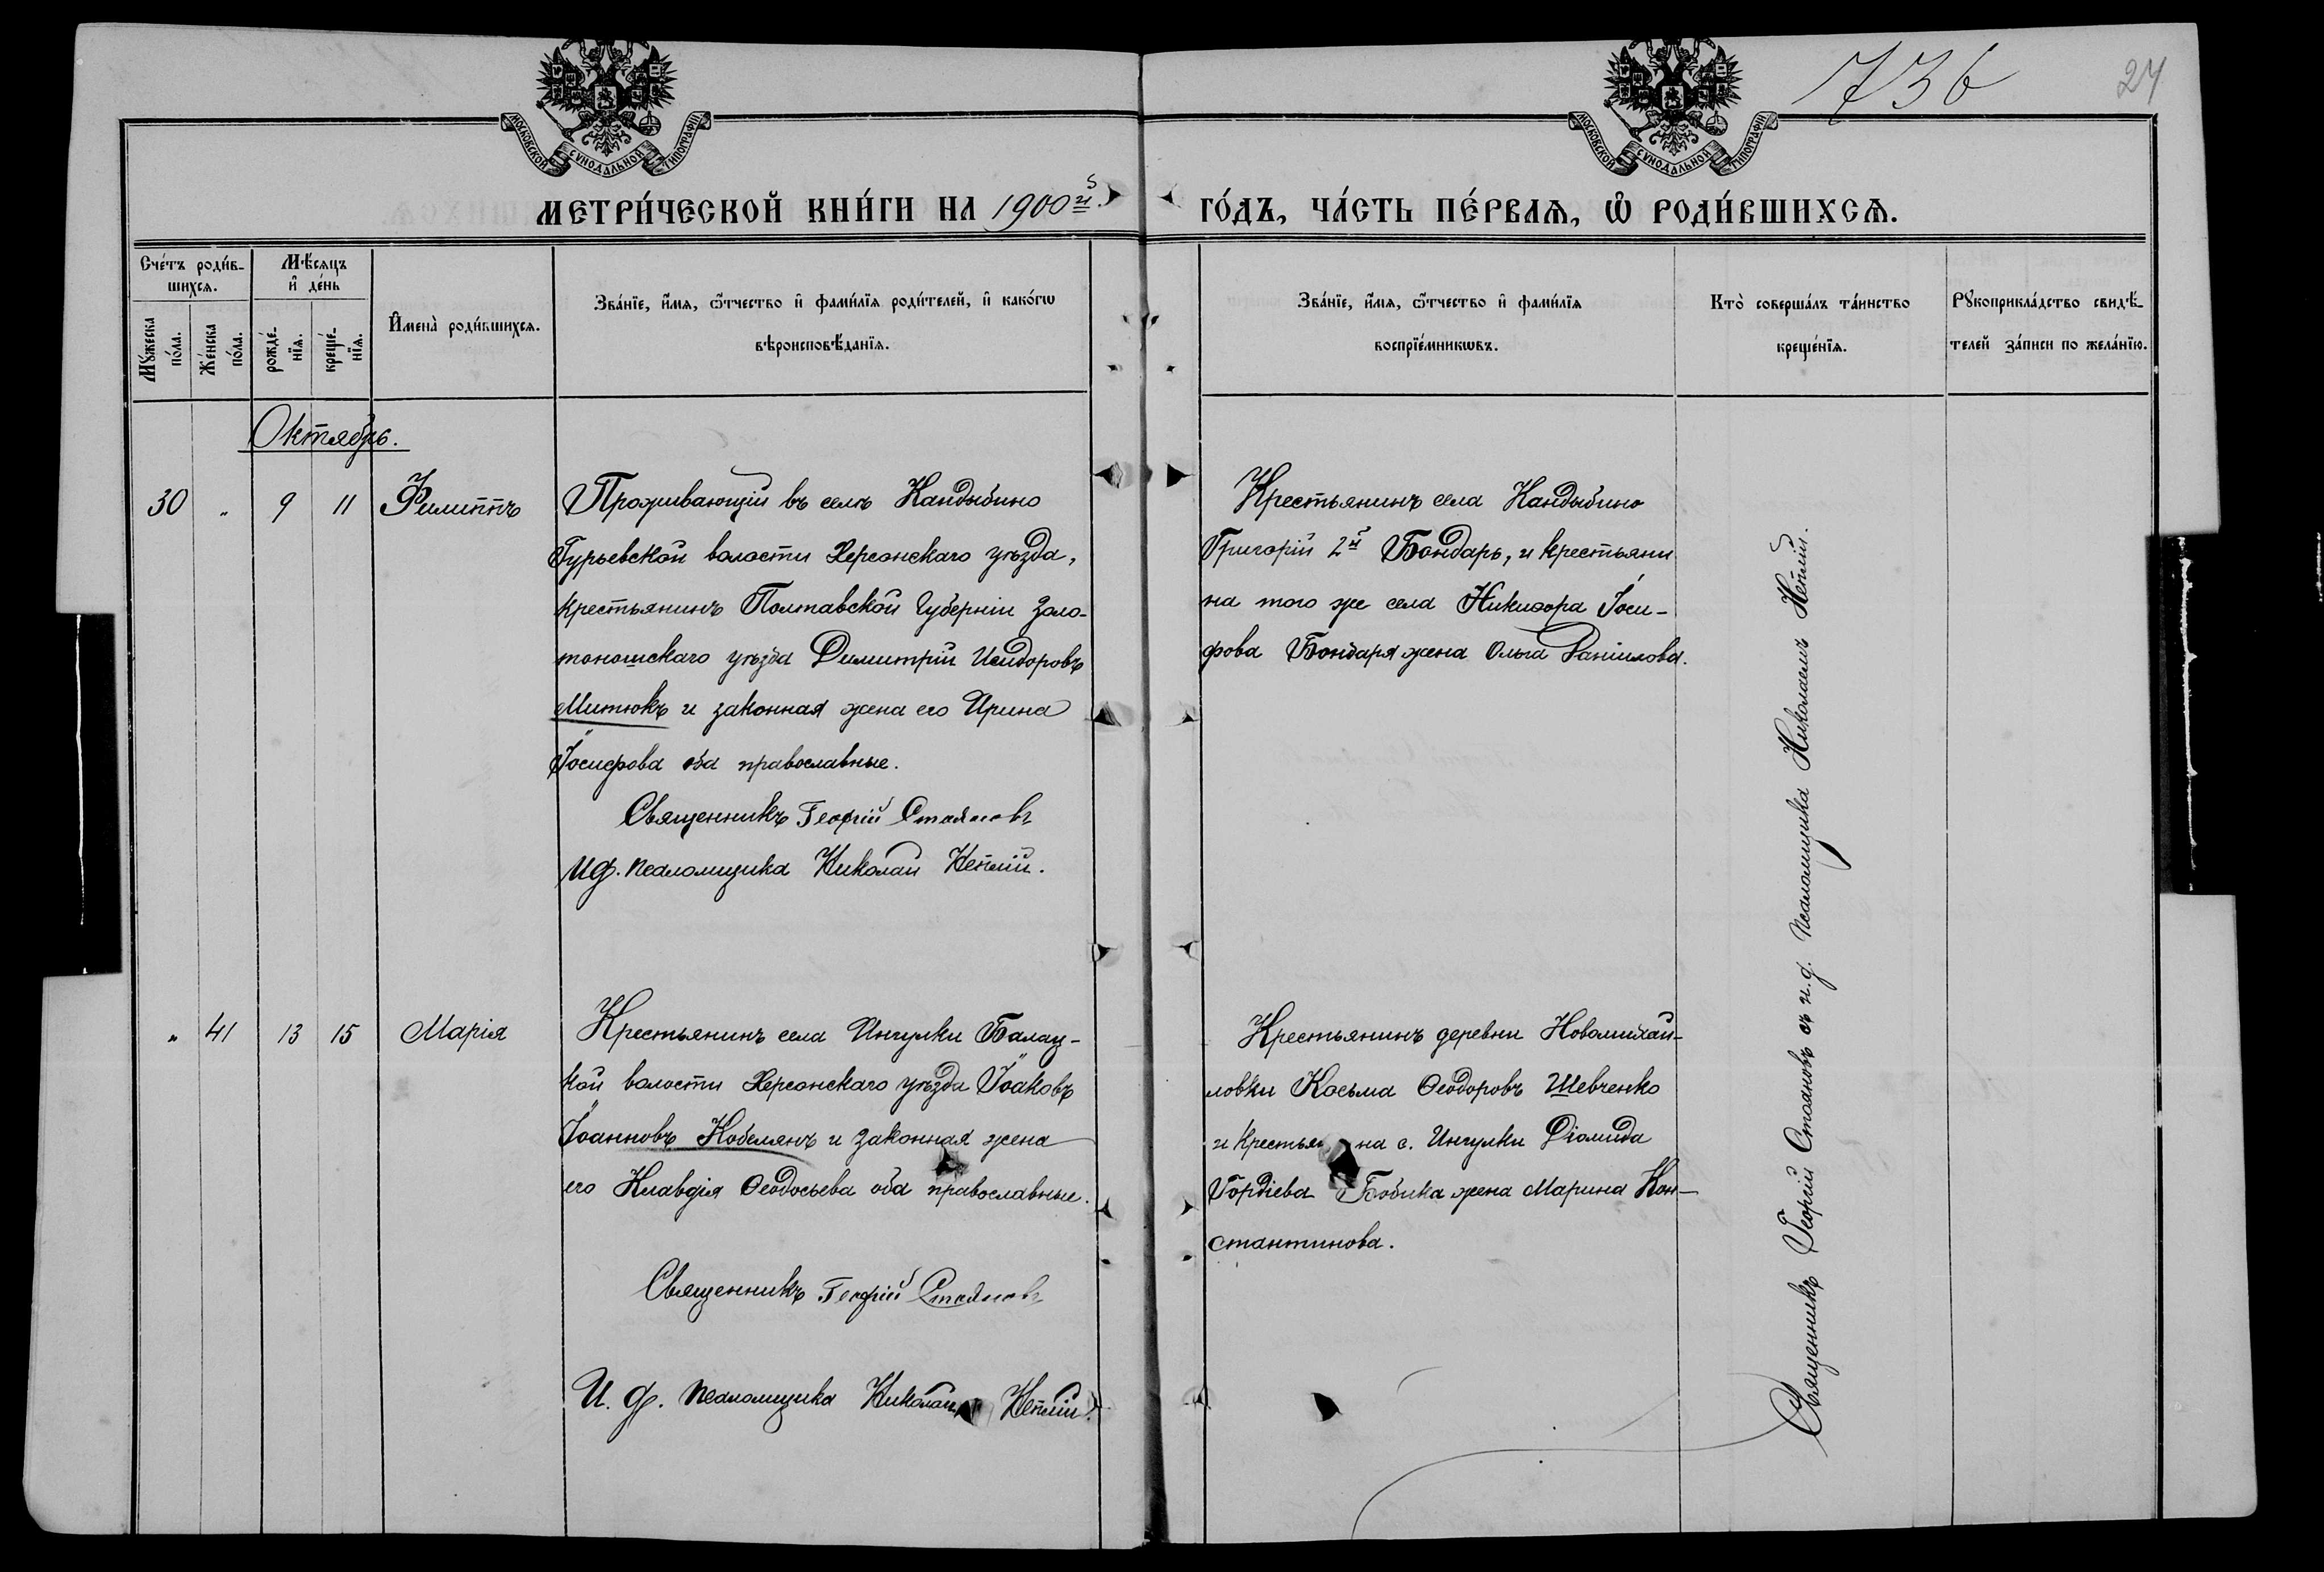 МОСКОВСКОЙ СѴНОДАЛЬНОЙ ТИПОГРАФІИ
МОСКОВСКОЙ СѴНОДАЛЬНОЙ ТИПОГРАФІИ
736
24
МЕТРИ́ЧЕСКОЙ КНИ́ГИ НА 1900й
ГО́ДЪ, ЧА́СТЬ ПЕ́РВАѦ, Ѡ҆ РОДИ́ВШИХСѦ.
Сче́тъ роди́в-
шихсѧ.
Мꙋ́жеска по́ла.
Же́нска по́ла.
Мѣ́сѧцъ
и҆ де́нь
рожде́-
нїѧ.
креще́-
нїѧ.
И҆мена̀ роди́вшихсѧ.
Зва́нїе, и҆́мѧ, ѻ҆́тчество и҆ фами́лїѧ роди́телей, и҆ како́гѡ
вѣроисповѣ́данїѧ.
Зва́нїе, и҆́мѧ, ѻ҆́тчество и҆ фами́лїѧ
воспрїе́мникѡвъ.
Кто̀ соверша́лъ та́инство
креще́нїѧ.
Рꙋкоприкла́дство свидѣ́-
телей за́писи по жела́нїю.
Октябрь.
30 " 9 11 Филиппъ
Проживающій въ селѣ Кандыбино
Гурьевской волости Херсонскаго уѣзда,
крестьянинъ Полтавской Губерніи Золо-
тоношскаго уѣзда Димитрій Исидоровъ
Митюкъ и законная жена его Ирина
Іосифова оба православные.
Священникъ Георгій Стояновъ
ИД. псаломщика Николай Кеплій.
Крестьянинъ села Кандыбино
Григорій 2й Бондарь, и крестьяни
на того же села Никиѳора Іоси-
фова Бондаря жена Ольга Даніилова.
" 41 13 15 Марія
Крестьянинъ села Ингулки Балац-
кой волости Херсонскаго уѣзда Іаковъ
Іоанновъ Кобелянъ и законная жена
его Клавдія Ѳеодосьева оба православные.
Священникъ Георгій Стояновъ
И. Д. псаломщика Николай Кеплій.
Крестьянинъ деревни Новомихай-
ловки Косьма Ѳеодоровъ Шевченко
и крестьянина с. Ингулки Діомида
Гордіева Бобика жена Марина Кон-
стантинова.
Священникъ Георгій Стояновъ съ и.д. псаломщика Николаемъ Кеплій.